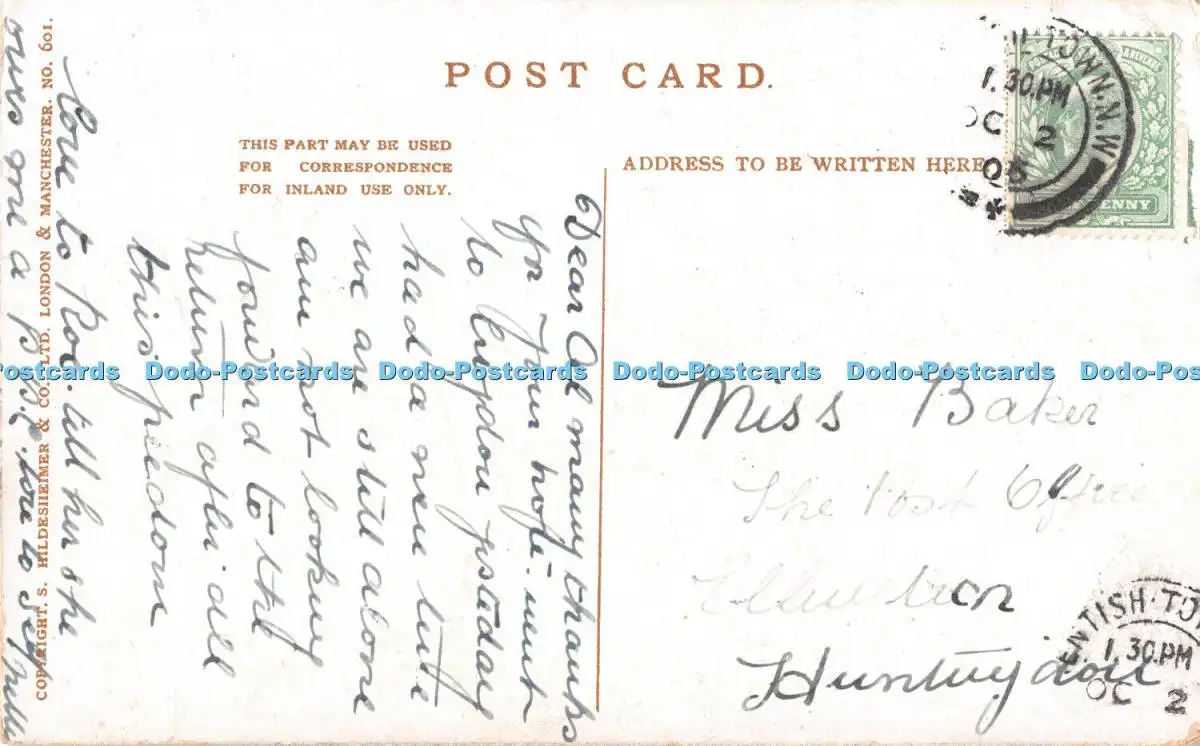 POST CARD.
THIS PART MAY BE USED
FOR CORRESPONDENCE
FOR INLAND USE ONLY.
ADDRESS TO BE WRITTEN HERE
TOWN. N.W
1.30.PM
OC 2
05
PENNY
Dear many thanks
for your note. went
to Croydon yesterday
had a new
we are still alone
am not looking
forward to the
return after all
this freedom
Love to till her she
owes me a
Miss Baker
The Post Office
Ellington
Huntingdon
ENTISH.TO
1.30.PM
OC 2
COPYRIGHT, S. HILDESHEIMER & CO., LTD. LONDON & MANCHESTER. NO. 601.
Dodo-Postcards Dodo-Postcards Dodo-Postcards Dodo-Postcards Dodo-Postcards